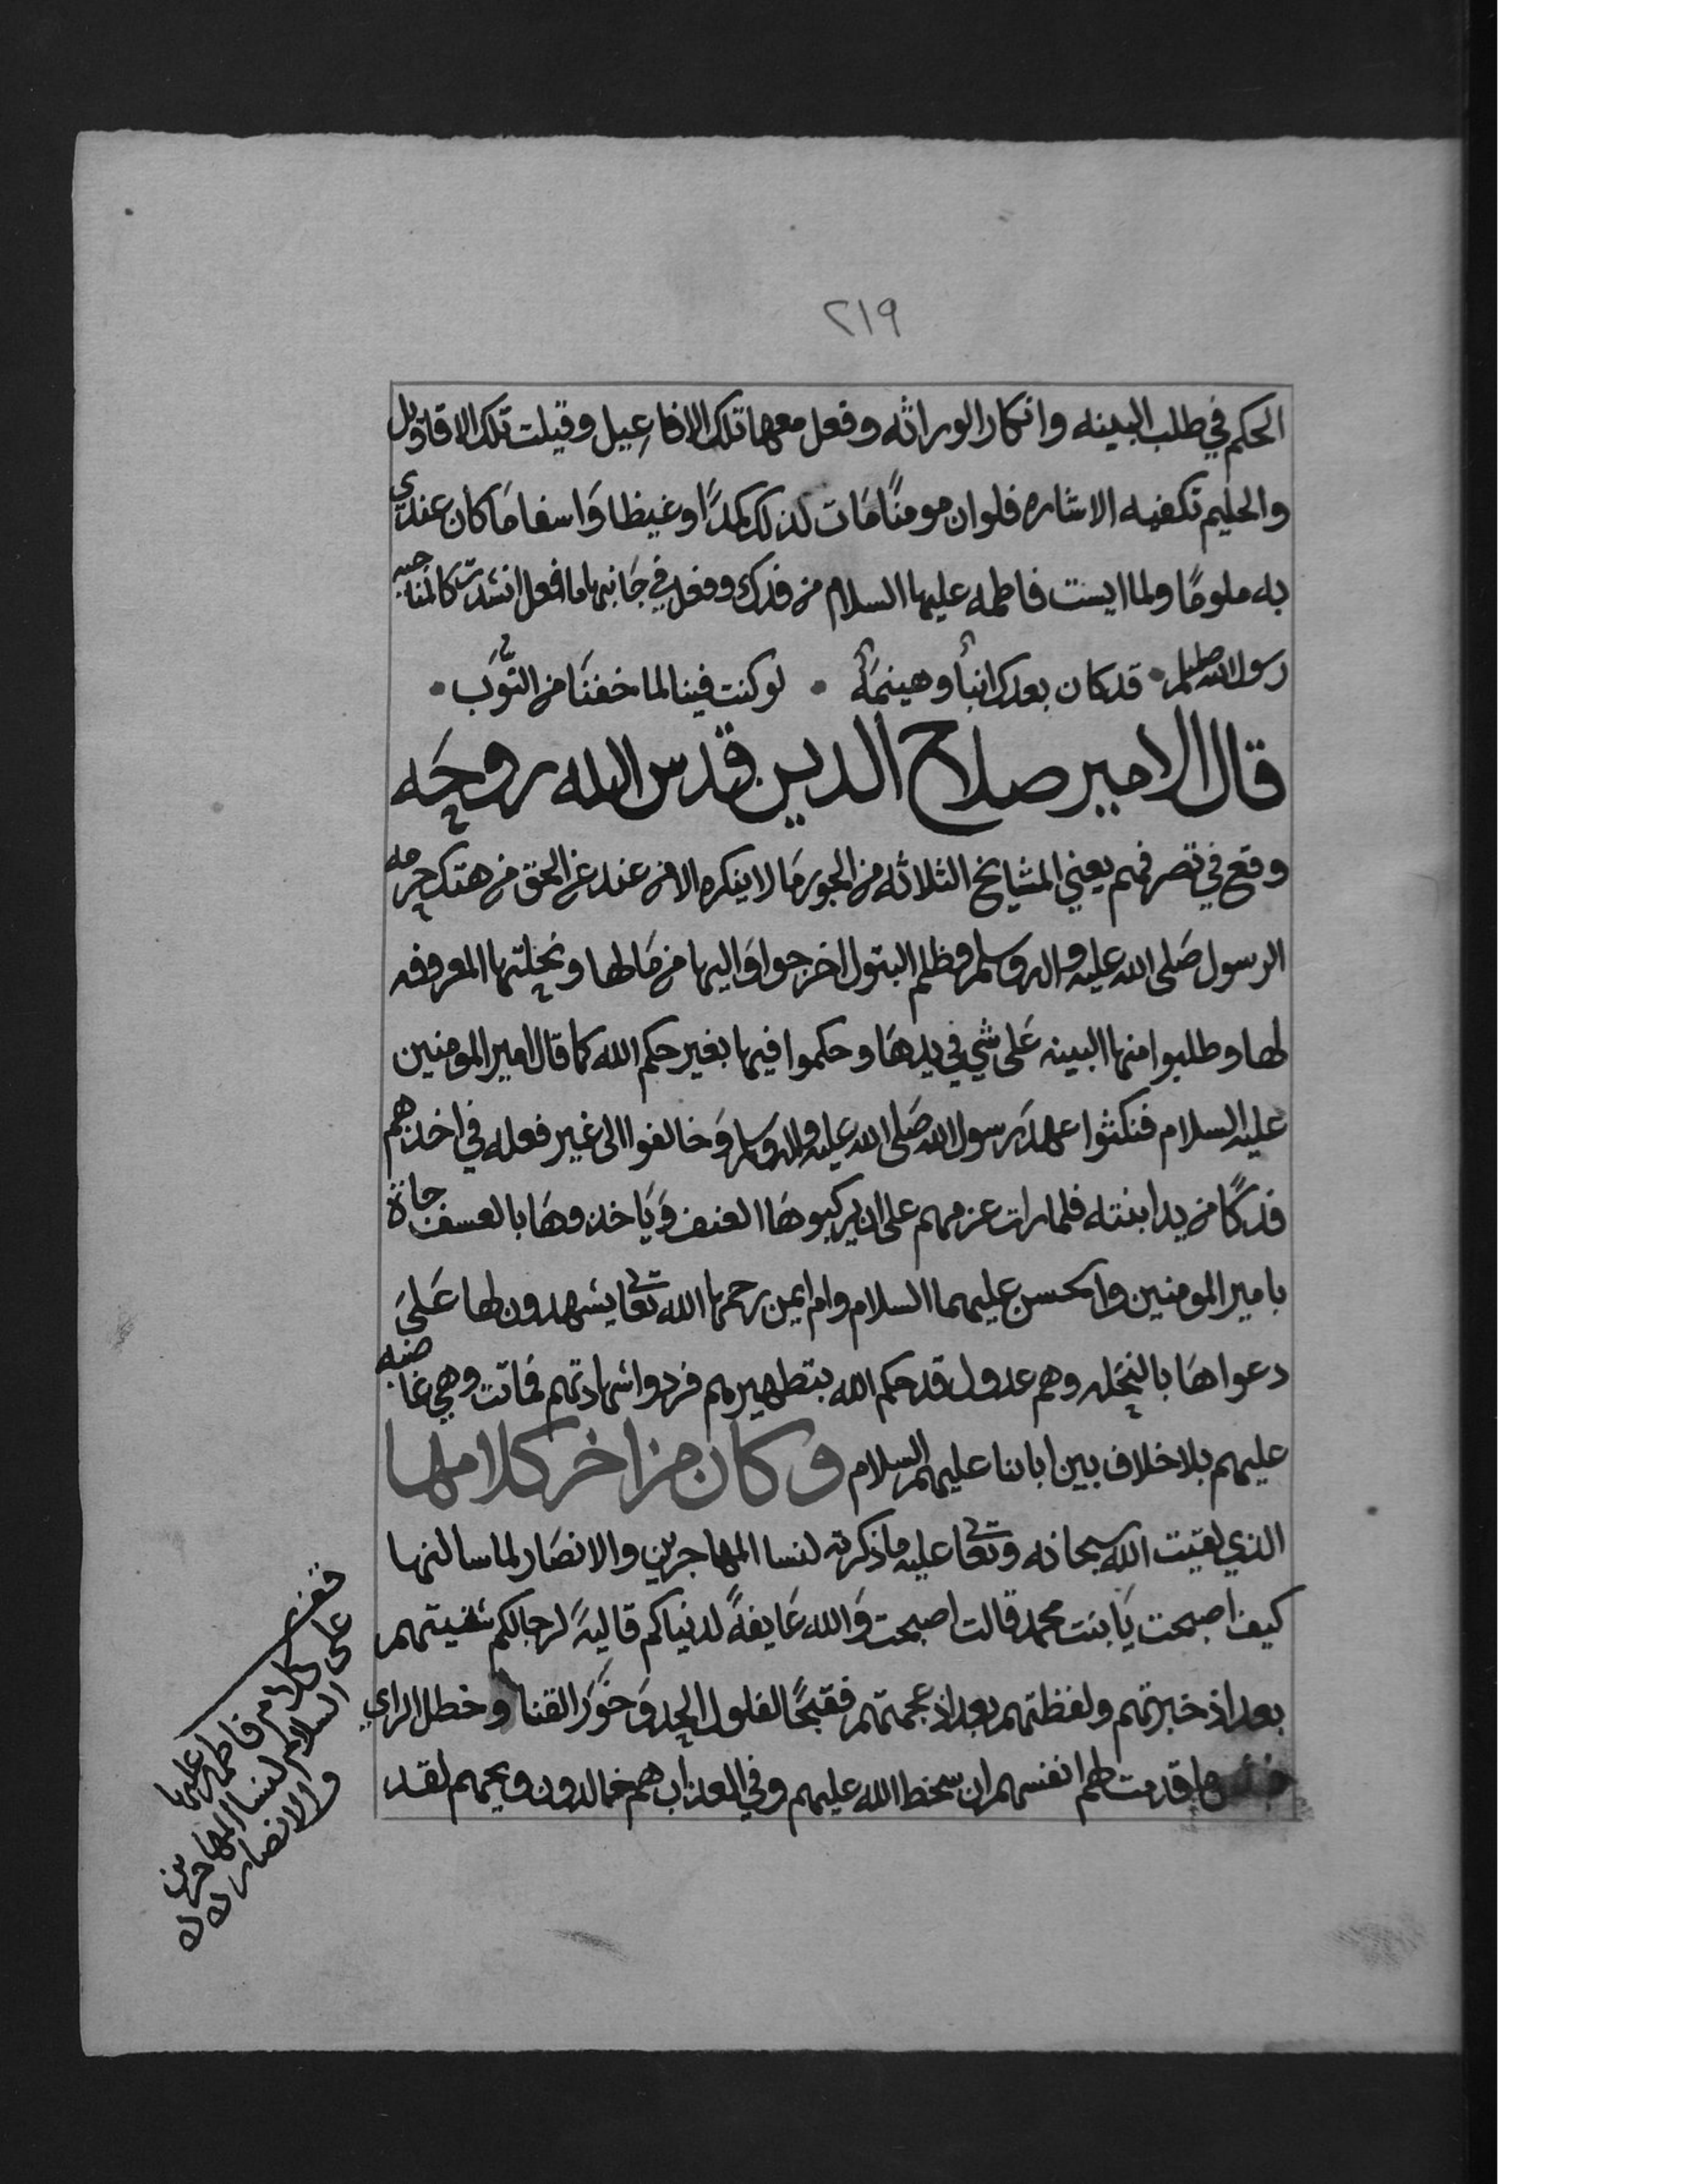 ٢١٩
الحكم في طلب البينه وانكار الوراثه وفعل معها تلك الافاعيل وقيلت تلك الاقاويل
والحليم تكفيه الاشاره فلو ان مومنًا مَات لذلك كمدًا وغيظا وَاسفا مَا كان عندي
به ملومًا ولما ايست فاطمه عليها السلام من فدك وفعل في جَانبها ما فعل انشدت كالمناجيه
رسول الله صلعم • قد كان بعدك انبأ وهينمَة • لو كنت فينا لما خفنَا من النوَب •
قال الامير صلاح الدين قدس الله روحَه
وقع في تصرفهم يعني المشايخ الثلاثه من الجور مَا لا ينكره الا من عند عن الحق من هتك حرمه
الرسول صَلى الله عليه واله وسلم وظلم البتول اخرجوا وَاليها من مَالها ونحلتها المعروفه
لها وطلبوا منها البينه عَلى شي في يدهَا وحكموا فيها بغير حكم الله كما قال امير المومنين
عليه السلام فنكثوا عهدَ رسول الله صَلى الله عليه واله وسلم وَخالفوا الى غير فعله في اخذهم
فدكًا من يد ابنته فلما رات عزمهم على ان يركبوهَا العنف وَيَاخذوهَا بالعسف جاة
بامير المومنين والحسن عليهما السلام وام ايمن رحمها الله تعا يشهدون لها عَلىَ
دعواهَا بالنحله وهم عدول قد حكم الله بتطهيرهم فردوا شهادتهم فماتت وهي غاضبه
عليهم بلا خلاف بين ابائنا عليهم السلام وكان من اخر كلامها
الذي لقيت الله سبحانه وتعا عليه ما ذكرته لنسا المهاجرين والانصَار لما سالنها
كيف اصبحت يَا بنت محمد قالت اصبحت وَالله عَايفةً لدنياكم قاليةً لرجالكم شنيتهم
بعد اذ خبرتهم ولفظتهم بعد اذ عجمتهم فقبحًا لفلول الحد وَخَوَر القنا وخطل الراي
ما قدمت لهم انفسهم ان سخط الله عليهم وفي العذاب هم خالدون ويحهم لقد
قف
على كلام فاطمه عليها
السلام لنسا المهاجرين
والانصار